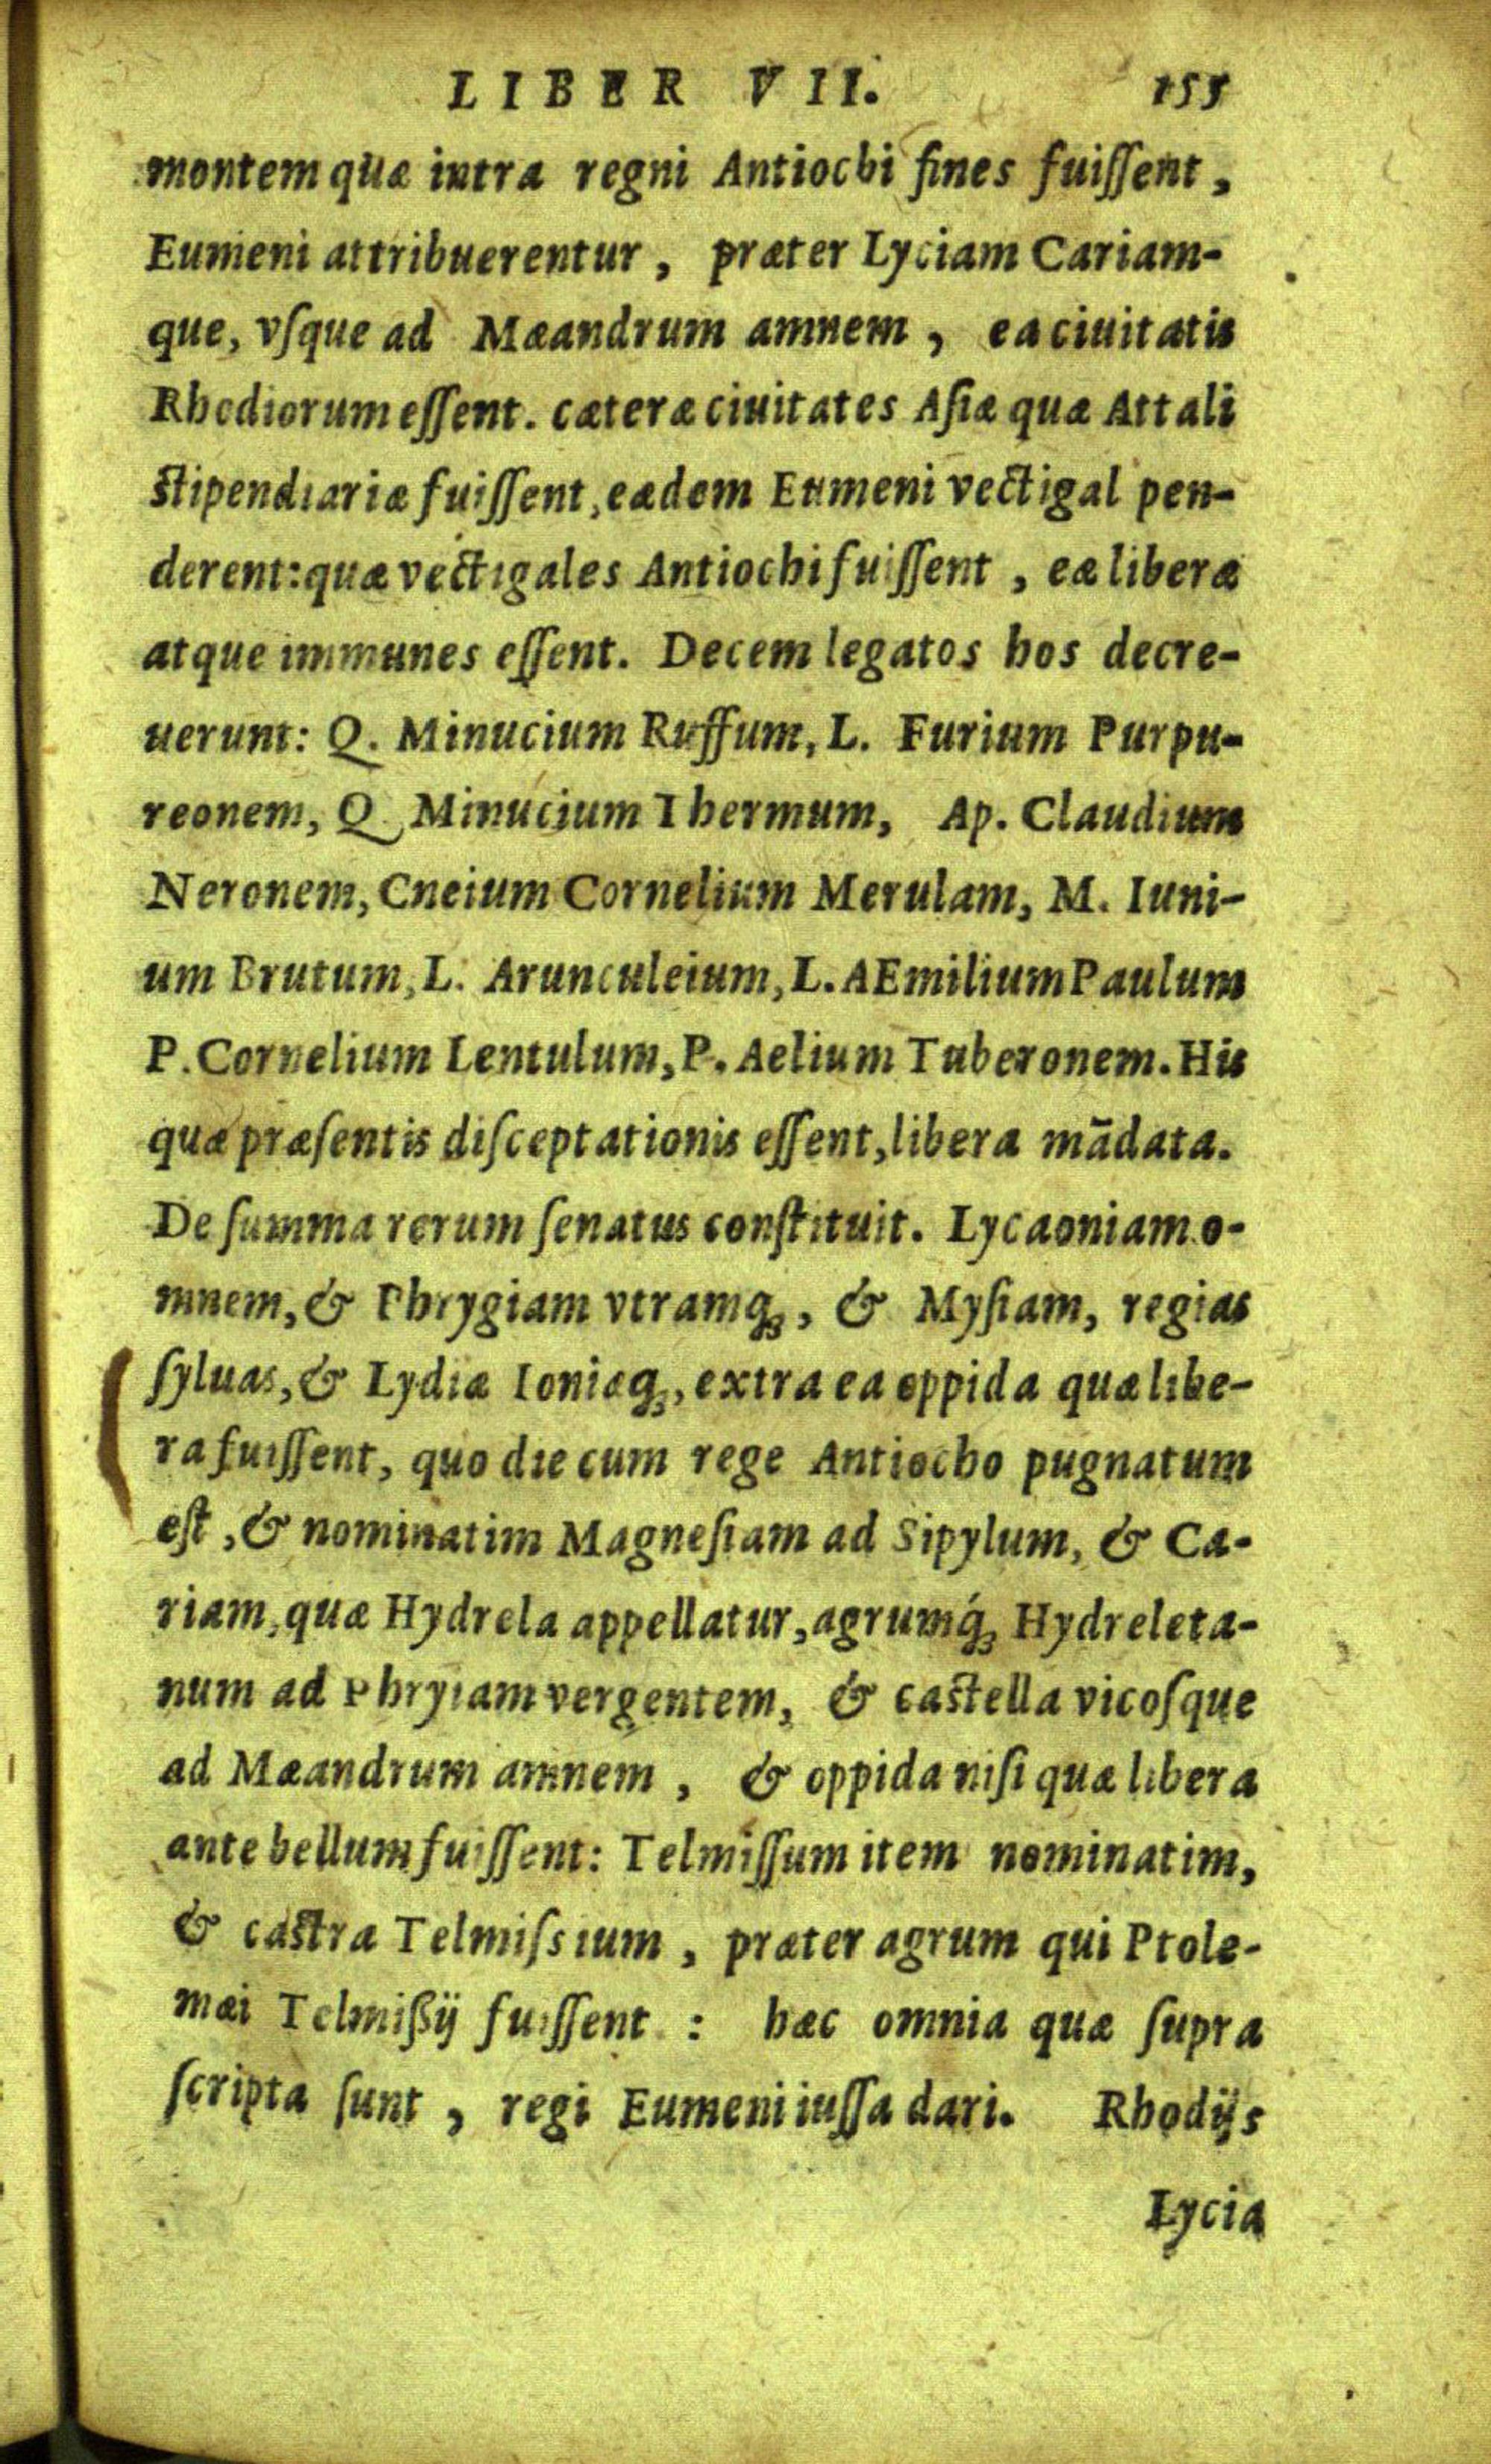 LIBER VII. 155
montem quæ intra regni Antiochi fines fuiſſent,
Eumeni attribuerentur, præter Lyciam Cariam-
que, vſque ad Mæandrum amnem, ea ciuitatis
Rhodiorum eſſent. cæteræ ciuitates Aſiæ quæ Attali
ſtipendiariæ fuiſſent, eædem Eumeni vectigal pen-
derent: quæ vectigales Antiochi fuiſſent, eæ liberæ
atque immunes eſſent. Decem legatos hos decre-
uerunt: Q. Minucium Ruffum, L. Furium Purpu-
reonem, Q. Minucium Thermum, Ap. Claudium
Neronem, Cneium Cornelium Merulam, M. Iuni-
um Brutum, L. Arunculeium, L. AEmilium Paulum
P. Cornelium Lentulum, P. Aelium Tuberonem. His
quæ præſentis diſceptationis eſſent, libera mādata.
De ſumma rerum ſenatus conſtituit. Lycaoniam o-
mnem, & Phrygiam vtramq;, & Myſiam, regias
ſyluas, & Lydiæ Ioniæq;, extra ea oppida quæ libe-
ra fuiſſent, quo die cum rege Antiocho pugnatum
eſt, & nominatim Magneſiam ad Sipylum, & Ca-
riam, quæ Hydrela appellatur, agrumq́; Hydreleta-
num ad Phryiam vergentem, & caſtella vicoſque
ad Mæandrum amnem, & oppida niſi quæ libera
ante bellum fuiſſent: Telmiſſum item nominatim,
& caſtra Telmiſsium, præter agrum qui Ptole-
mæi Telmißij fuiſſent: hæc omnia quæ ſupra
ſcripta ſunt, regi Eumeni iuſſa dari. Rhodijs
Lycia